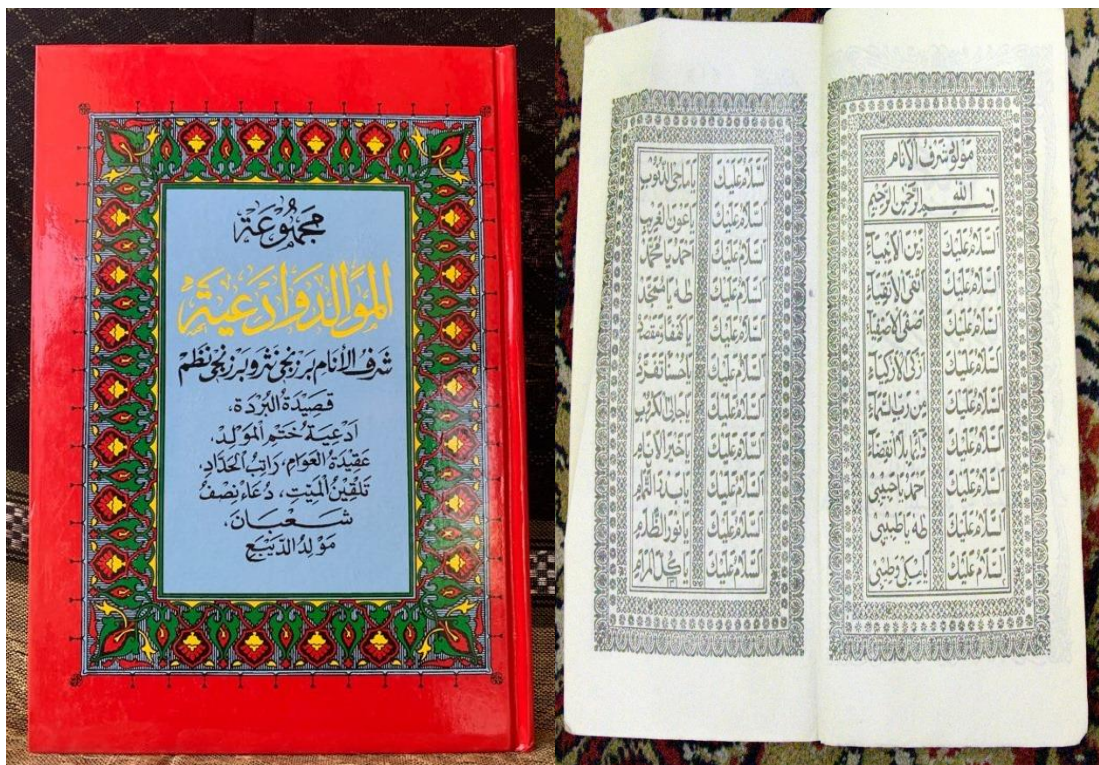 مَجْمُوعَة
المَوَالِد وَادعِيَة
شَرَفُ الأَنَامِ بَرزنجي نثر وبَرزنجي نظم
قصِيدَةُ البُرْدَة،
ادعِيَة خُتِمَ المَولِد،
عَقِيدَةُ العَوامِ، رَاتِبُ الحَدَّادِ،
تَلْقِينُ المَيِّتِ، دُعَاءْ نِصْفُ
شَعْبَانَ،
مَوْلِدُ الدَّيْبَعِ
مولد شرف الانام
بسم الله الرحمن الرحيم
السَّلَامُ عَلَيْكَ زَيْنَ الْأَنْبِيَاءِ
السَّلَامُ عَلَيْكَ أَتْقَى الْأَتْقِيَاءِ
السَّلَامُ عَلَيْكَ أَصْفَى الْأَصْفِيَاءِ
السَّلَامُ عَلَيْكَ أَزْكَى الْأَزْكِيَاءِ
السَّلَامُ عَلَيْكَ مِنْ رَبِّ السَّمَاءِ
السَّلَامُ عَلَيْكَ دَائِمًا بِلَا انْقِضَاءِ
السَّلَامُ عَلَيْكَ أَحْمَدُ يَا حَبِيبِي
السَّلَامُ عَلَيْكَ طٰهٰ يَا طَبِيبِي
السَّلَامُ عَلَيْكَ يَا مِسْكِي وَطِيبِي
السَّلَامُ عَلَيْكَ يَا مَاحِيَ الذُّنُوبِ
السَّلَامُ عَلَيْكَ يَا عَوْنَ الْغَرِيبِ
السَّلَامُ عَلَيْكَ أَحْمَدُ يَا مُحَمَّدُ
السَّلَامُ عَلَيْكَ طٰهٰ يَا مُمَجَّدُ
السَّلَامُ عَلَيْكَ يَا كَهْفًا وَمَقْصَدُ
السَّلَامُ عَلَيْكَ يَا حُسْنًا تَفَرَّدُ
السَّلَامُ عَلَيْكَ يَا جَالِيَ الْكُرُوبِ
السَّلَامُ عَلَيْكَ يَا خَيْرَ الْأَنَامِ
السَّلَامُ عَلَيْكَ يَا بَدْرَ التَّمَامِ
السَّلَامُ عَلَيْكَ يَا نُورَ الظَّلَامِ
السَّلَامُ عَلَيْكَ يَا كُلَّ الْمَرَامِ